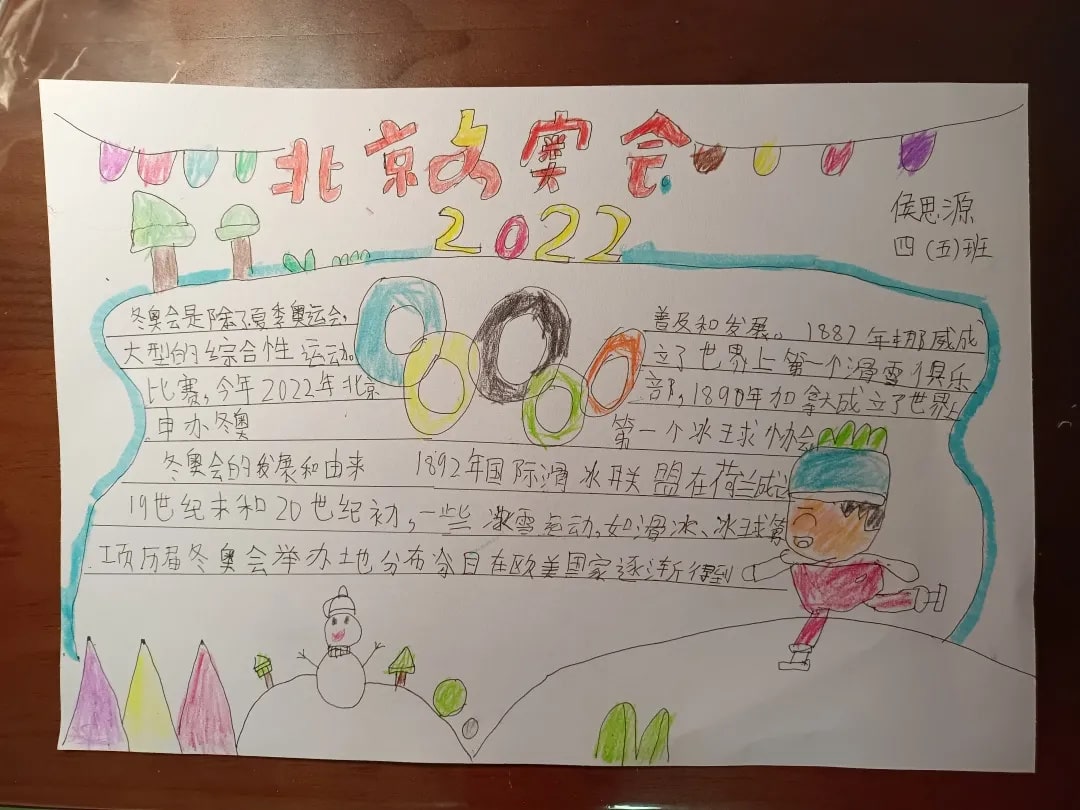 北京冬奥会
2022
侯思源
四(五)班
冬奥会是除了夏季奥运会,
大型的综合性运动
比赛,今年2022年北京
申办冬奥
普及和发展。1887年挪威成
立了世界上第一个滑雪俱乐
部,1890年加拿大成立了世界上
第一个冰球协会
冬奥会的发展和由来 1892年国际滑冰联盟在荷兰成
19世纪末和20世纪初,一些冰雪运动,如滑冰、冰球等
项历届冬奥会举办地分布 在欧美国家逐渐得到